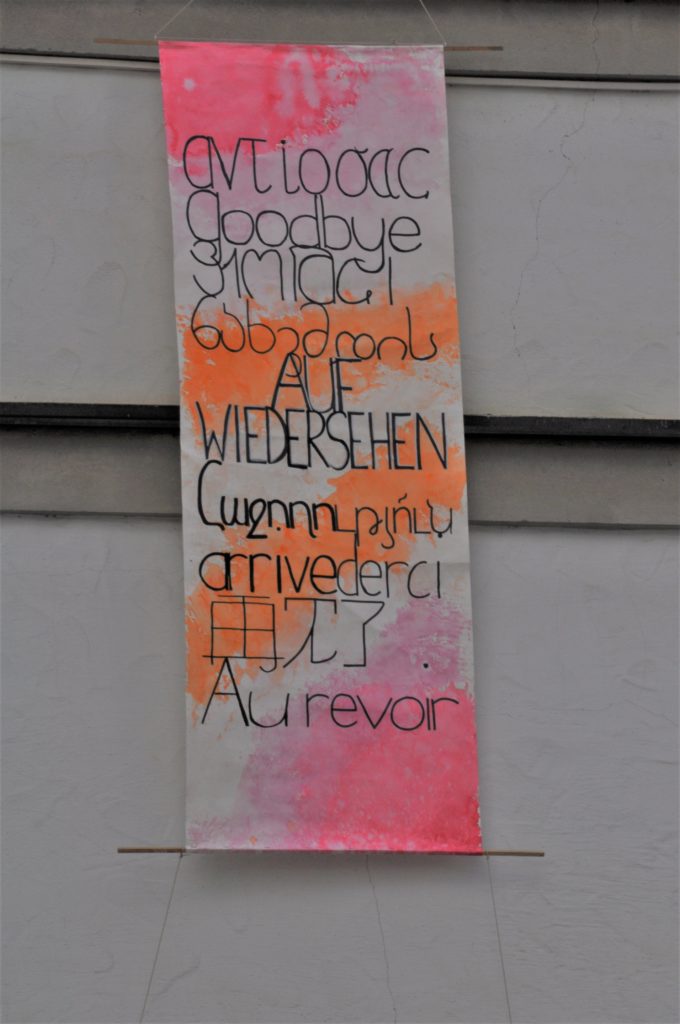 αντίο σας
goodbye
ნახვამდის
AUF
WIEDERSEHEN
Հաջողություն
arrivederci
Au revoir